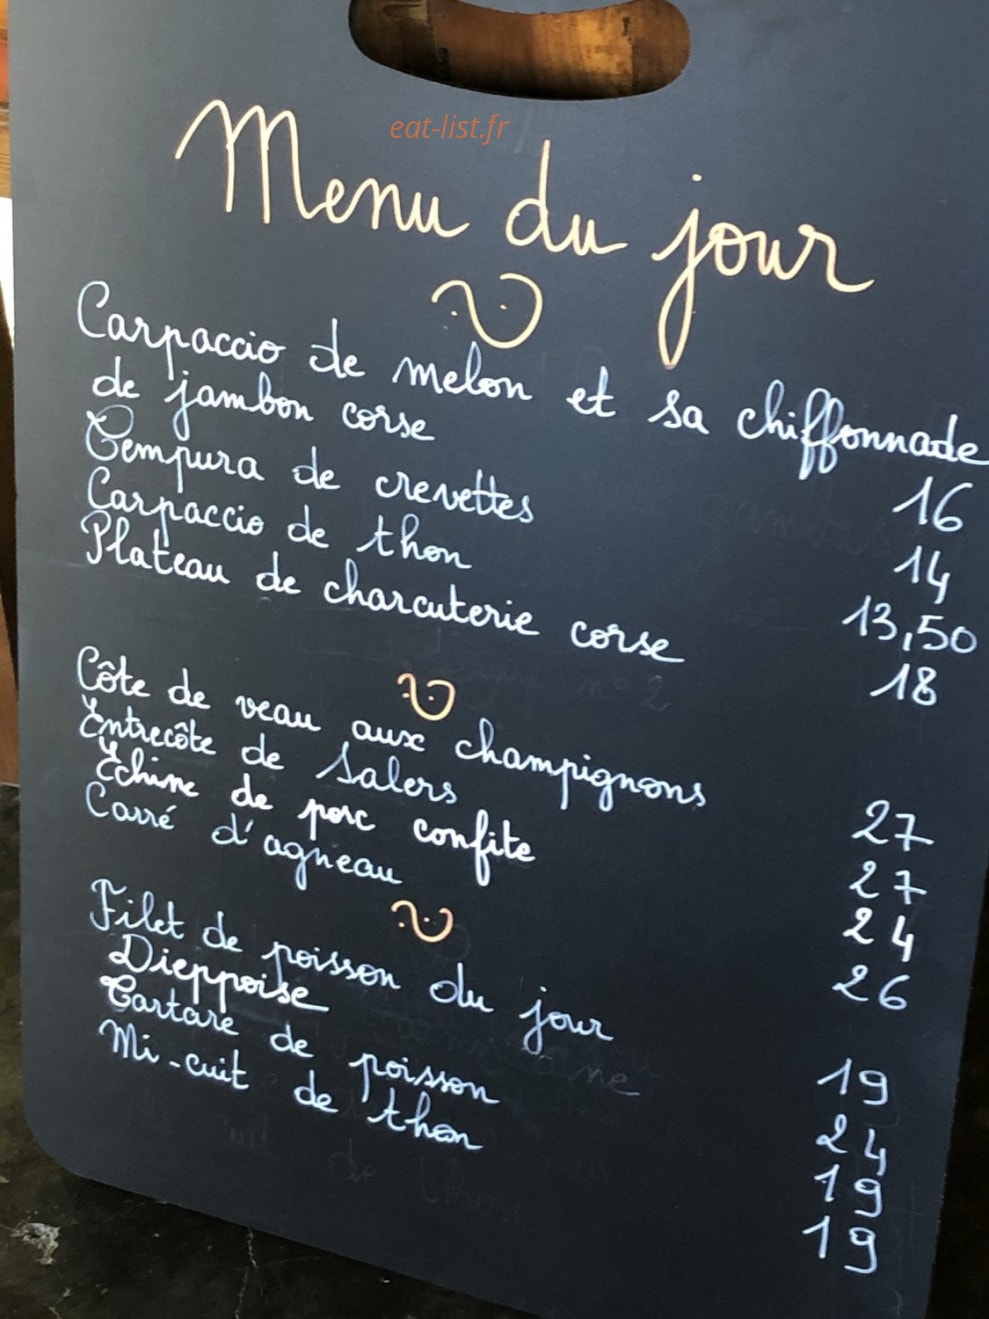 eat-list.fr
Menu du jour
Carpaccio de melon et sa chiffonnade
de jambon corse 16
Tempura de crevettes 14
Carpaccio de thon 13,50
Plateau de charcuterie corse 18
Côte de veau aux champignons 27
Entrecôte de Salers 27
Échine de porc confite 24
Carré d'agneau 26
Filet de poisson du jour 19
Dieppoise 24
Tartare de poisson 19
Mi-cuit de thon 19